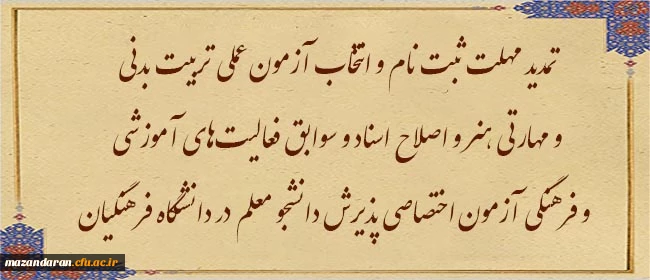 تمدید مهلت ثبت نام و انتخاب آزمون عملی تربیت بدنی
و مهارتی هنر و اصلاح اسناد و سوابق فعالیت‌های آموزشی
و فرهنگی آزمون اختصاصی پذیرش دانشجو معلم در دانشگاه فرهنگیان
mazandaran.cfu.ac.ir